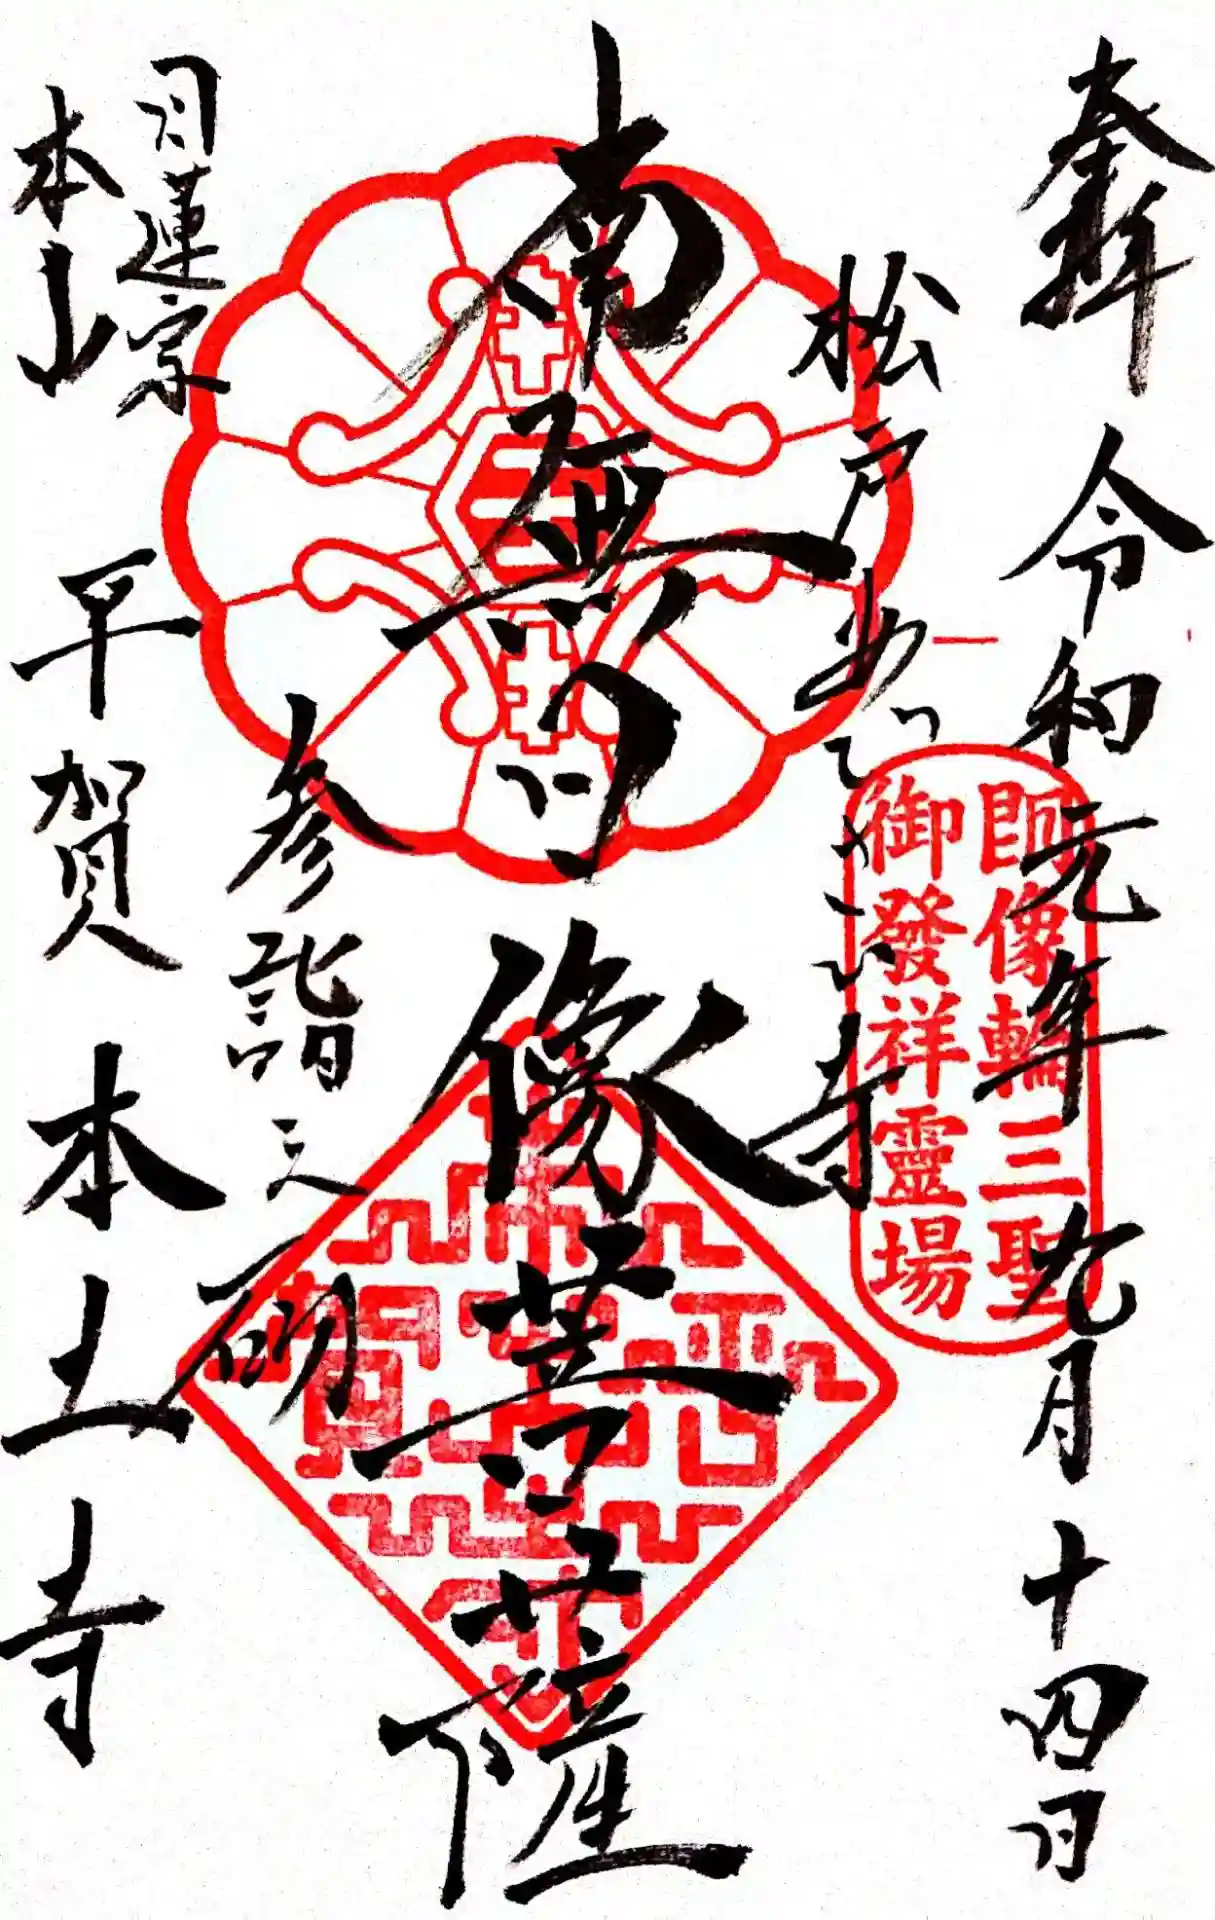 奉拝 令和元年九月十四日
朗像輪三聖
御發祥靈場
松戸あぢさい寺
南無日像菩薩
参詣之砌
日蓮宗
本山
平賀 本土寺